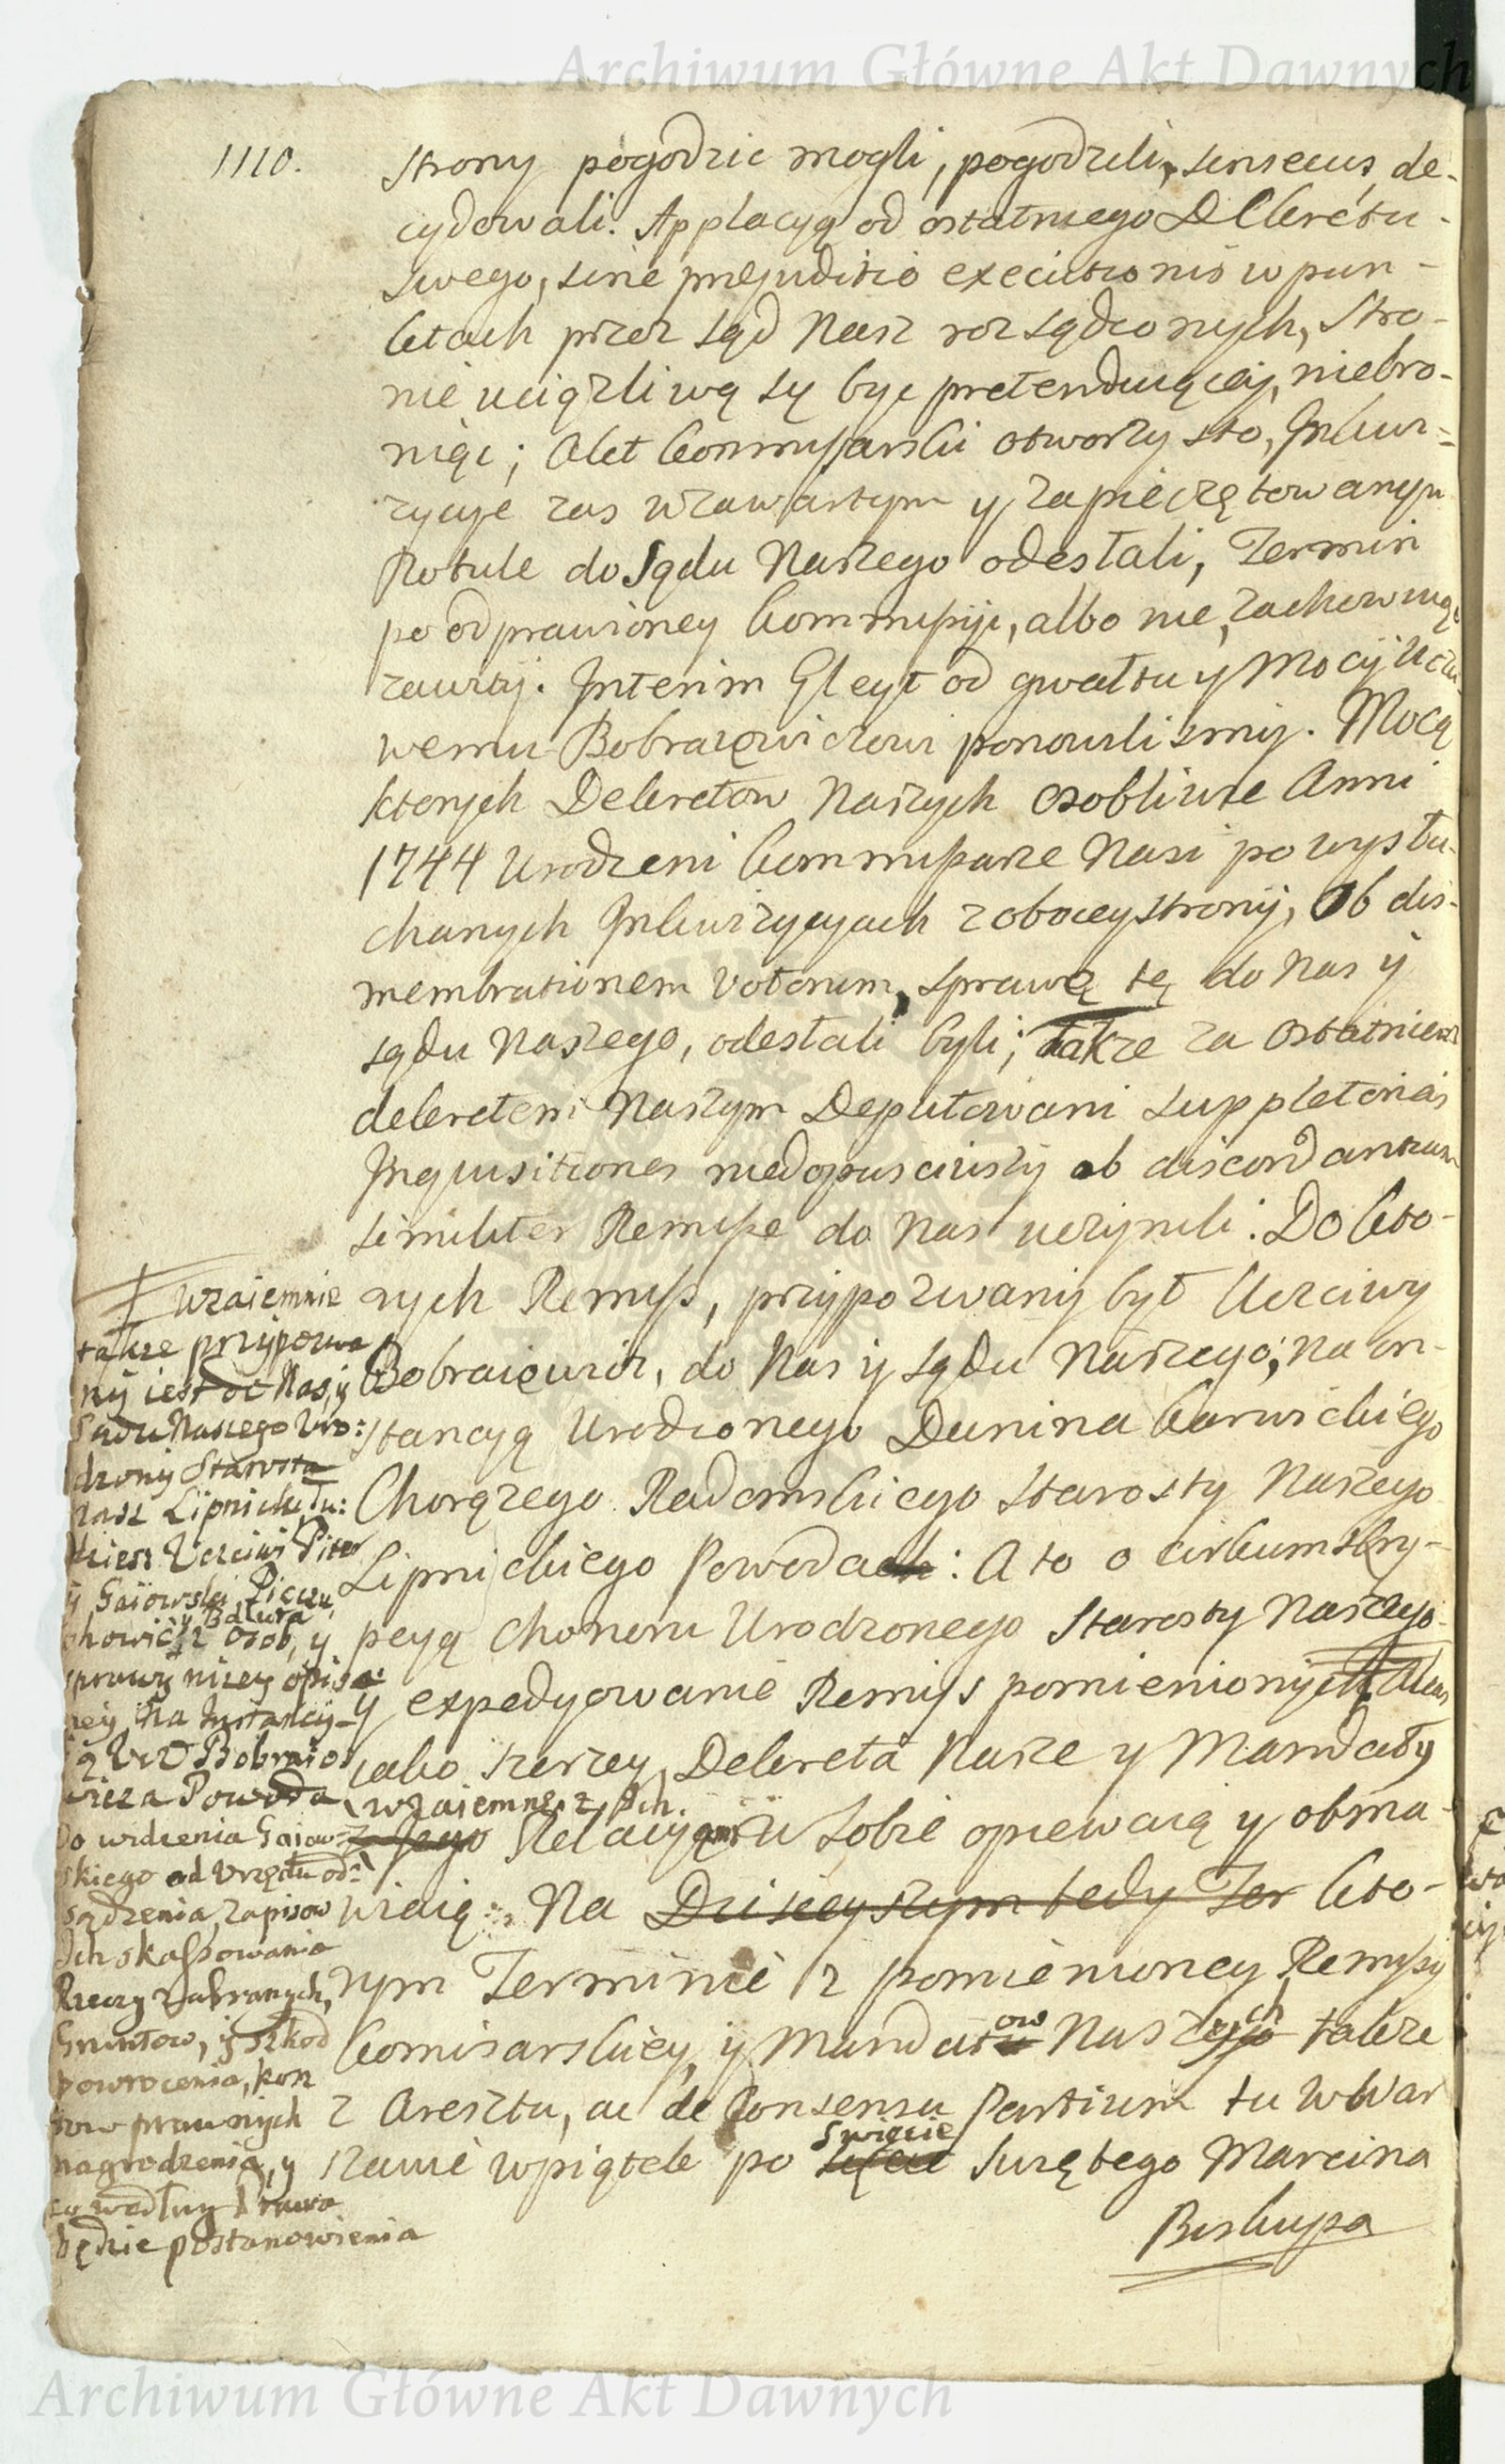 Archiwum Główne Akt Dawnych
1110.
strony pogodzic mogli, pogodzili, sinsecus de-
cydowali. Appelacyą od ostatniego Dekretu
swego, sine prejuditio executionis w pun-
ktach przez sąd Nasz rozsądzonych, Stro-
nie uciązliwą są byc pretenduiącey, niebro-
niąc; Akt kommissarski otworzysto, Inkwi=
zycye zas w zawartym y zapieczętowanym
Rotule do Sądu Naszego odesłali, Termin
po odprawioney kommissyi, albo nie, zachowuiąc
zawity. Interim Gleyt od gwałtu y Mocy Uczci-
wemu Bobraiewiczowi ponowilismy. Mocą
ktorych Dekretow Naszych osobliwie Anni
1744 Urodzeni kommissarze Nasi po wysłu-
chanych Inkwizycyach z obocey strony, Ob dis-
membrationem Votorum, sprawę tę do Nas y
sądu Naszego, odesłali byli; także za ostatniem
dekretem Naszym Deputowani suppletorias
Inquisitiones niedopusciwszy ob discordantiam
similiter Remisse do Nas uczynili. Do kto-
rych Remiss, przypozwany był Uczciwy
Bobraiewicz, do Nas y sądu Naszego; na in-
stancyą Urodzonego Dunina karwickiego
Chorązego Radomskiego Starosty Naszego
Lipnickiego Powoda: A to o cirkumskry-
pcyą honoru Urodzonego Starosty Naszego
y expedyowanie Remiss pomienionych
iako szerzey Dekreta Nasze y Mandaty
wzaiemne z Ich
z Jego Relacyami w sobie opiewaią y obma-
wiaią: Na Dzisieyszym tedy Ter kto-
rym Terminie z pomienioney Remissy
komisarskiey, y Mandatow Naszych takze
z Aresztu, ac de Consensu Partium tu w War
szawie w piątek po Swięcie Swiętego Marcina
Biskupa
wzaiemnie
takze przypozwa
ny iest do Nas, y
Sądu Naszego Uro:
dzony Starosta
nasz Lipnicki, tu:
dziesz Uczciwi Piotr
y Gaiowski, Piczu
y Batura
chowicz z osob, y
sprawy nizey opisa:
ney, Na Instancy-
ą Ucz Bobraio
wicza Powoda
Do widzenia Gaiow:
skiego od Urzędu od:
sądzenia, zapisow
Ich skassowania
Rzeczy zabranych,
Gruntow, y Szkod
powrocenia, kosz
tow prawnych
nagrodzenia, y
co według Prawa
będzie postanowienia
Archiwum Główne Akt Dawnych